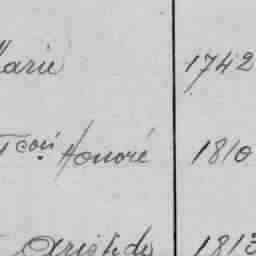 Marie 1742
Fcois Honoré 1810
Aristide 1813